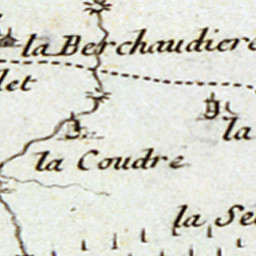 la Berchaudiere
let
la
la Coudre
la Se